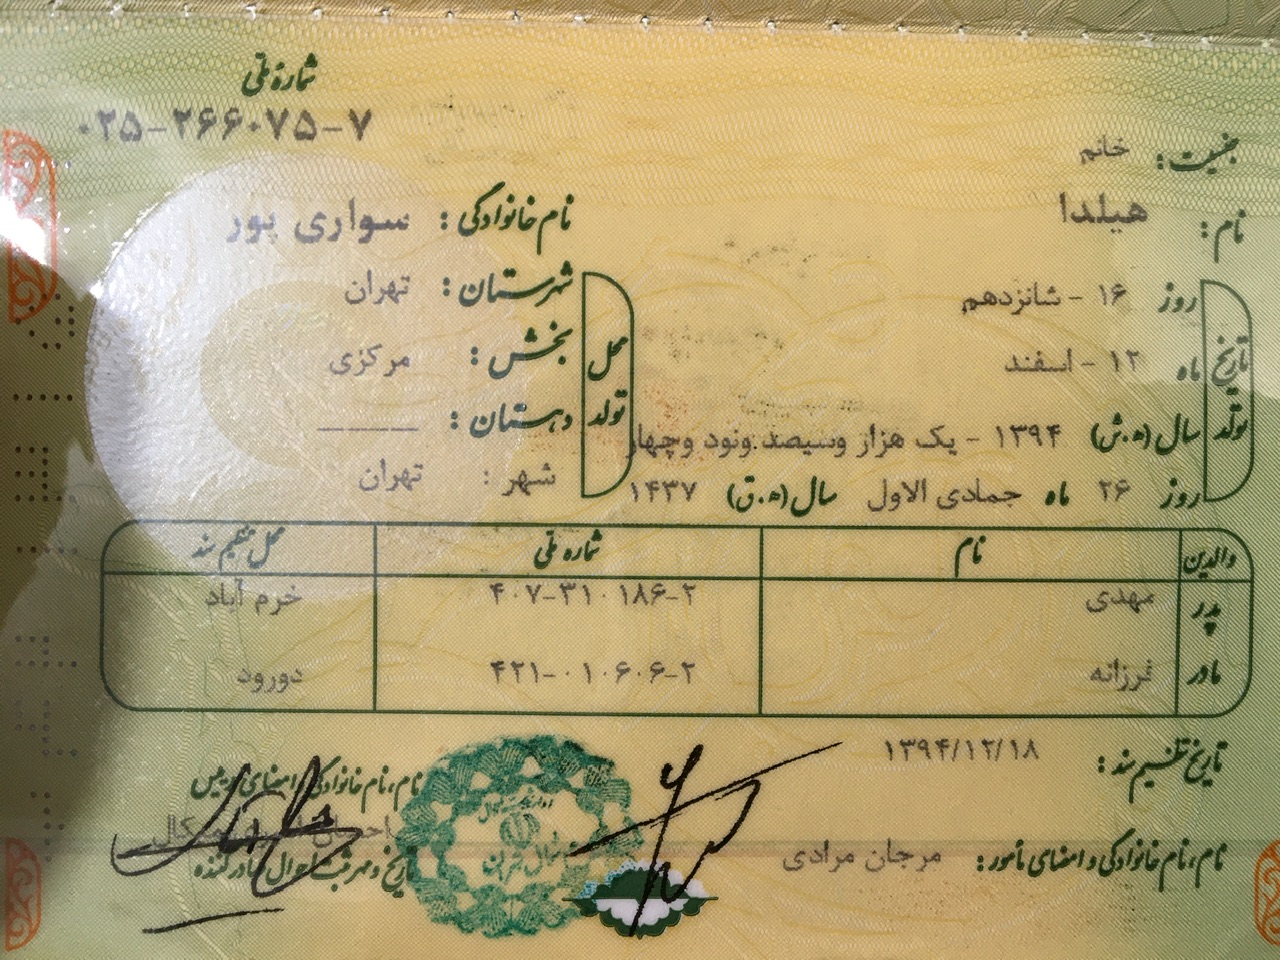 شماره ملی
۰۲۵-۲۶۶۰۷۵-۷
جنسیت: خانم
نام: هیلدا
نام خانوادگی: سواری پور
تاریخ تولد
روز ۱۶ - شانزدهم
ماه ۱۲ - اسفند
سال (ه.ش) ۱۳۹۴ - یک هزار وسیصد.ونود وچهار
روز ۲۶ ماه جمادی الاول سال (ه.ق) ۱۴۳۷
محل تولد
شهرستان: تهران
بخش: مرکزی
دهستان: ————
شهر: تهران
والدین نام شماره ملی محل تنظیم سند
پدر مهدی ۴۰۷-۳۱۰۱۸۶-۲ خرم آباد
مادر فرزانه ۴۲۱-۰۱۰۶۰۶-۲ دورود
تاریخ تنظیم سند: ۱۳۹۴/۱۲/۱۸
نام، نام خانوادگی و امضای مأمور: مرجان مرادی
نام، نام خانوادگی، امضای رئیس
تاریخ و مهر ثبت احوال صادرکننده